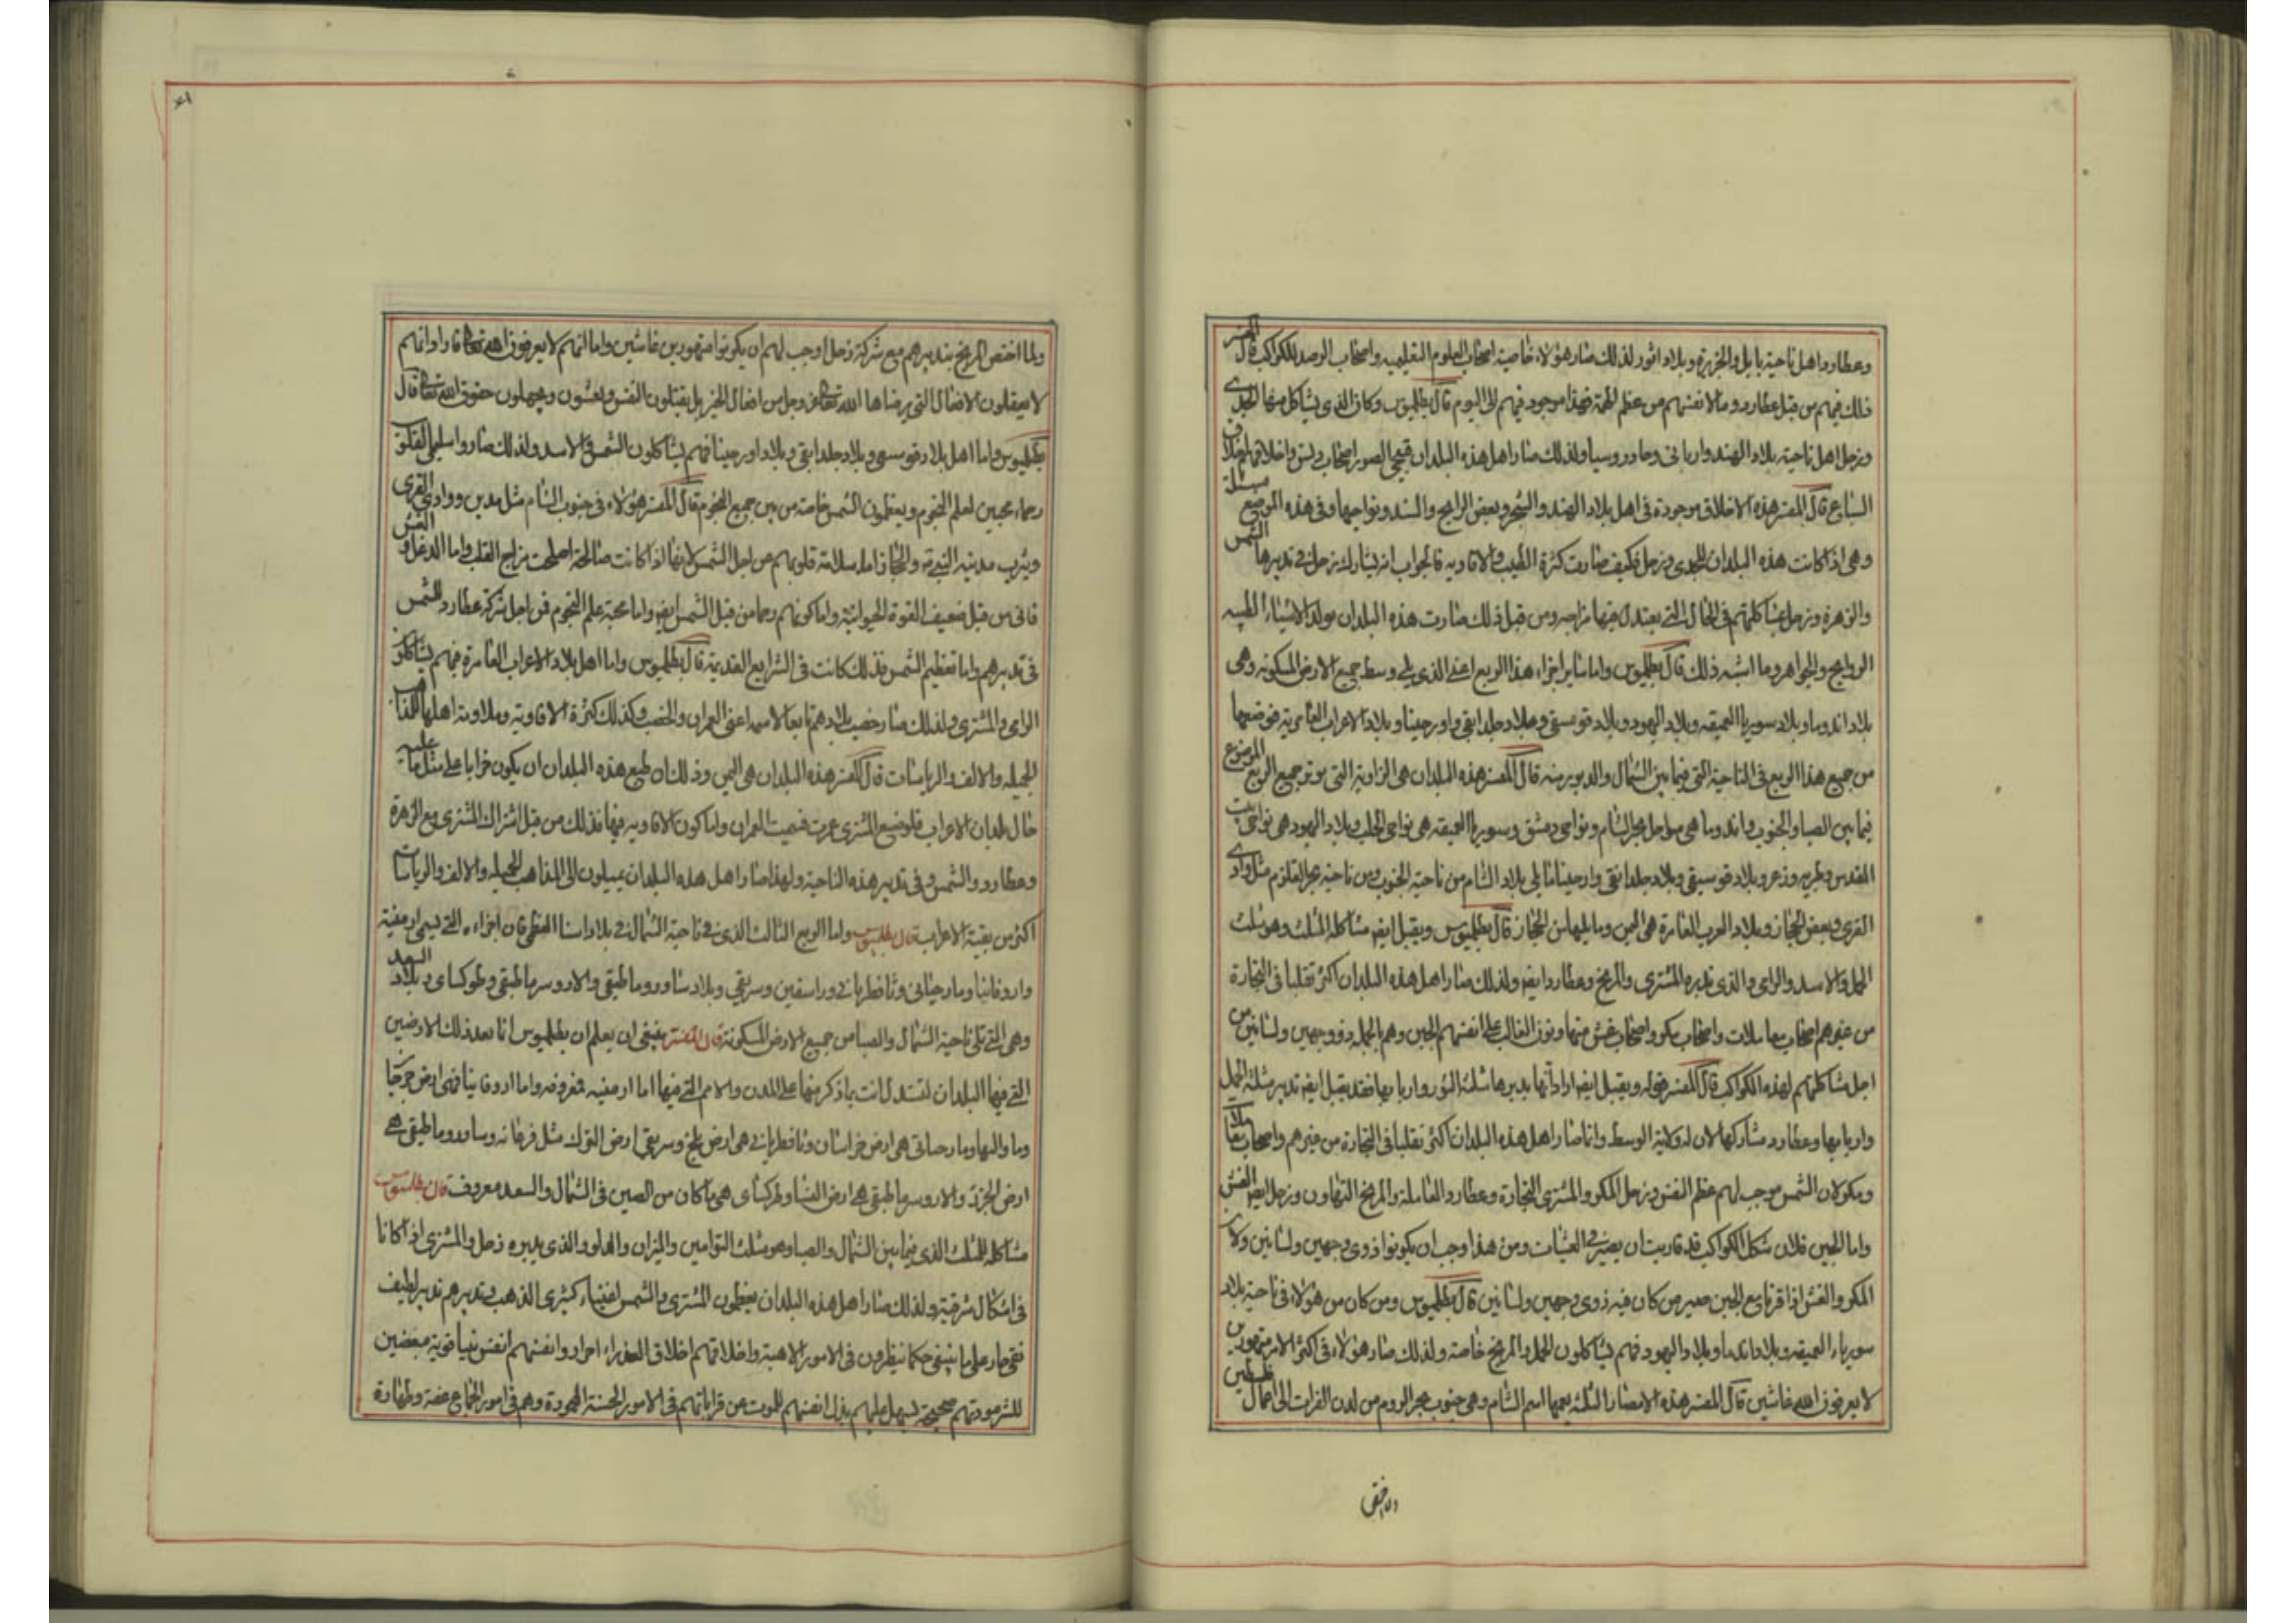 وعطارد واهل ناحية بابل والجزيرة وبلاد اثور لذلك صار هؤلاء خاصية اصحاب العلوم التعليميه واصحاب الرصد للكواكب قال المفسر
ذلك فيهم من قبل عطارد وما لانفسهم من عظم الهمة فهذا موجود فيهم الى اليوم قال بطلميوس وكان الذى يشاكل منها الجدى
وزحل اهل ناحية بلاد الهند واريانى وجادروسيا ولذلك صار اهل هذه البلدان قبيحى الصور اصحاب دنس واخلاقهم اخلاق
السباع قال المفسر هذه الاخلاق موجودة فى اهل بلاد الهند والشحر وبعض الرانج والسند ونواحيها وفى هذه الموضع مسئلة
وهى اذا كانت هذه البلدان للجدى وزحل فكيف صارت كثرة الطيب والافاويه فالجواب انه يشارك زحل فى تدبيرها الشمس
والزهرة وزحل بمشاكلتهم فى الحال التى يعتدل فيها مزاجه ومن قبل ذلك صارت هذه البلدان مولد الاشياء الطيبه
الروايح والجواهر وما اشبه ذلك قال بطلميوس واما ساير اجزاء هذا الربع اعنى الذى يلى وسط جميع الارض المسكونه وهى
بلاد اندوما وبلاد سوريا العميقه وبلاد اليهود وبلاد فونسيقى وبلاد جلدانيقى واورحينيا وبلاد الاعراب العامرية فموضعها
من جميع هذا الربع فى الناحية التى فيما بين الشمال والدبور منه قال المفسر هذه البلدان هى الزاوية التى يوتر جميع الربع الموضوع
فيما بين الصبا والجنوب واندوما هى سواحل بحر الشام ونواحى دمشق وسوريا العميقه هى نواحى الحلب وبلاد اليهود هى نواحى بيت
المقدس وطبريه وزعر وبلاد فونسيقى وبلاد جلدانيقى وارحينيا ما يلى بلاد الشام من ناحية الجنوب ومن ناحية بحر القلزم مثل وادى
القرى وبعض الحجاز وبلاد العرب العامرة هى اليمن وما يليها من الحجاز قال بطلميوس ويقبل ايضا مشاكلة المثلث وهو مثلث
الحمل والاسد والرامى والذى تدبره المشترى والمريخ وعطارد ايضا ولذلك صار اهل هذه البلدان اكثر تقلبا فى التجارة
من غيرهم اصحاب معاملات واصحاب مكر واصحاب غش متهاونون الغالب على انفسهم الجبن وهم بالجملة ذو وجهين ولسانين من
اجل مشاكلتهم لهذه الكواكب قال المفسر قوله ويقبل ايضا اراد انها يدبرها مثلثة الثور واربابها فقد يقبل ايضا تدبير مثلثة الحمل
واربابها وعطارد مشاركها لان له ولاية الوسط وانما صار اهل هذه البلدان اكثر تقلبا فى التجارة من غيرهم واصحاب معاملات
ومكر لان الشمس موجب لهم عظم النفس وزحل المكر والمشترى التجارة وعطارد المعاملة والمريخ التهاون وزحل ايضا الغش
واما الجبن فلان شكل الكواكب قد قاربت ان يصير فى العشيات ومن هذا وجب ان يكونوا ذوى وجهين ولسانين ولان
المكر والغش اذا قرنا مع الجبن صير من كان فيه ذوى وجهين ولسانين قال بطلميوس ومن كان من هؤلاء فى ناحية بلاد
سورياء العميقة وبلاد اندما وبلاد اليهود فهم يشاكلون الحمل والمريخ خاصة ولذلك صار هؤلاء فى اكثر الامر متهورين
لا يعرفون الله غاشين قال المفسر هذه الامصار الثلثة يعمها اسم الشام وهى جنوب بحر الروم من لدن الفرات الى اعمال فلسطين
ولما اختص المريخ بتدبيرهم مع شركة زحل اوجب لهم ان يكونوا متهورين غاشين واما انهم لا يعرفون الله تعالى فاراد انهم
لا يعقلون الافعال التى يرضاها الله تعالى عز وجل من افعال الخير بل يقتلون النفس ويغشون ويجهلون حقوق الله تعالى قال
بطلميوس واما اهل بلاد فونسيقى وبلاد جلدانيقى وبلاد اورحينيا فهم يشاكلون الشمس والاسد ولذلك صاروا سليمى القلوب
رحماء محبين لعلم النجوم ويعظمون الشمس خاصة من بين جميع النجوم قال المفسر هؤلاء فى جنوب الشام مثل مدين ووادى القرى
ويثرب مدينة النبى والحجاز اما سلامة قلوبهم من اجل الشمس لانها اذا كانت صالحة اصلحت مزاج القلب واما الدغل والغش
فانى من قبل ضعيف القوة الحيوانية واما كونهم رحما من قبل الشمس ايضا واما محبة علم النجوم فمن اجل شركة عطارد للشمس
فى تدبيرهم واما تعظيم الشمس فذلك كانت فى الشرايع القديمة قال بطلميوس واما اهل بلاد الاعراب العامرة فهم يشاكلون
الرامى والمشترى ولذلك صار خصب بلادهم تابعا لاسمه اعنى العمران والخصب وكذلك كثرة الافاويه وملاومة اهلها للمذاهب
الجميله والالف والرياسات قال المفسر هذه البلدان هى اليمن وذلك ان طبع هذه البلدان ان يكون خرابا على مثل ما عليه
حال بلدان الاعراب فلموضع المشترى عمرت فسميت العمران واما كون الافاويه فيها فذلك من قبل اشتراك المشترى مع الزهرة
وعطارد والشمس فى تدبير هذه الناحية ولهذا صار اهل هذه البلدان يميلون الى المذاهب الجميله والالف والرياسات
اكثر من بقية الاعراب قال بطلميوس واما الربع الثالث الذى فى ناحية الشمال فى بلاد اسيا العظمى فان اجزاءه التى يسمى ارمنية
واروقانيا ومارحيانى وباقطريانى وراسقين وسريقى وبلاد ساوروماطيقى والاروسرماطيقى وطوكساى وبلاد السغد
وهى التى تلى ناحية الشمال والصبا من جميع الارض المسكونة قال المفسر ينبغى ان يعلم ان بطلميوس انما يعد ذلك الارضين
التى فيها البلدان لتستدل انت بما ذكر منها على المدن والامم التى فيها اما ارمنيه فمعروفه واما اروقانيا فهى ارض جرجان
وما والاها ومارحيانى هى ارض خراسان وباقطريانى هى ارض بلخ وسريقى ارض الترك مثل فرغانه وساوروماطيقى هى
ارض الخزر والاروسرماطيقى هى ارض النسا وطركساى هى ما كان من الصين فى الشمال والسغد معروف قال بطلميوس
مشاكله للمثلث الذى فيما بين الشمال والصبا وهو مثلث التوامين والميزان والدلو والذى يدبره زحل والمشترى اذا كانا
فى اشكال شرقية ولذلك صار اهل هذه البلدان يعظمون المشترى والشمس اغنياء كثيرى الذهب وتدبيرهم تدبير لطيف
نقى جار على ما ينبغى حكما ينظرون فى الامور الالهية واخلاقهم اخلاق العذراء احرار وانفسهم انفس قوية مبغضين
للشر مودتهم صحيحة يسهل عليهم بذل انفسهم للموت عن قراباتهم فى الامور الحسنة المحمودة وهم فى امور الجماع عفة وطهارة